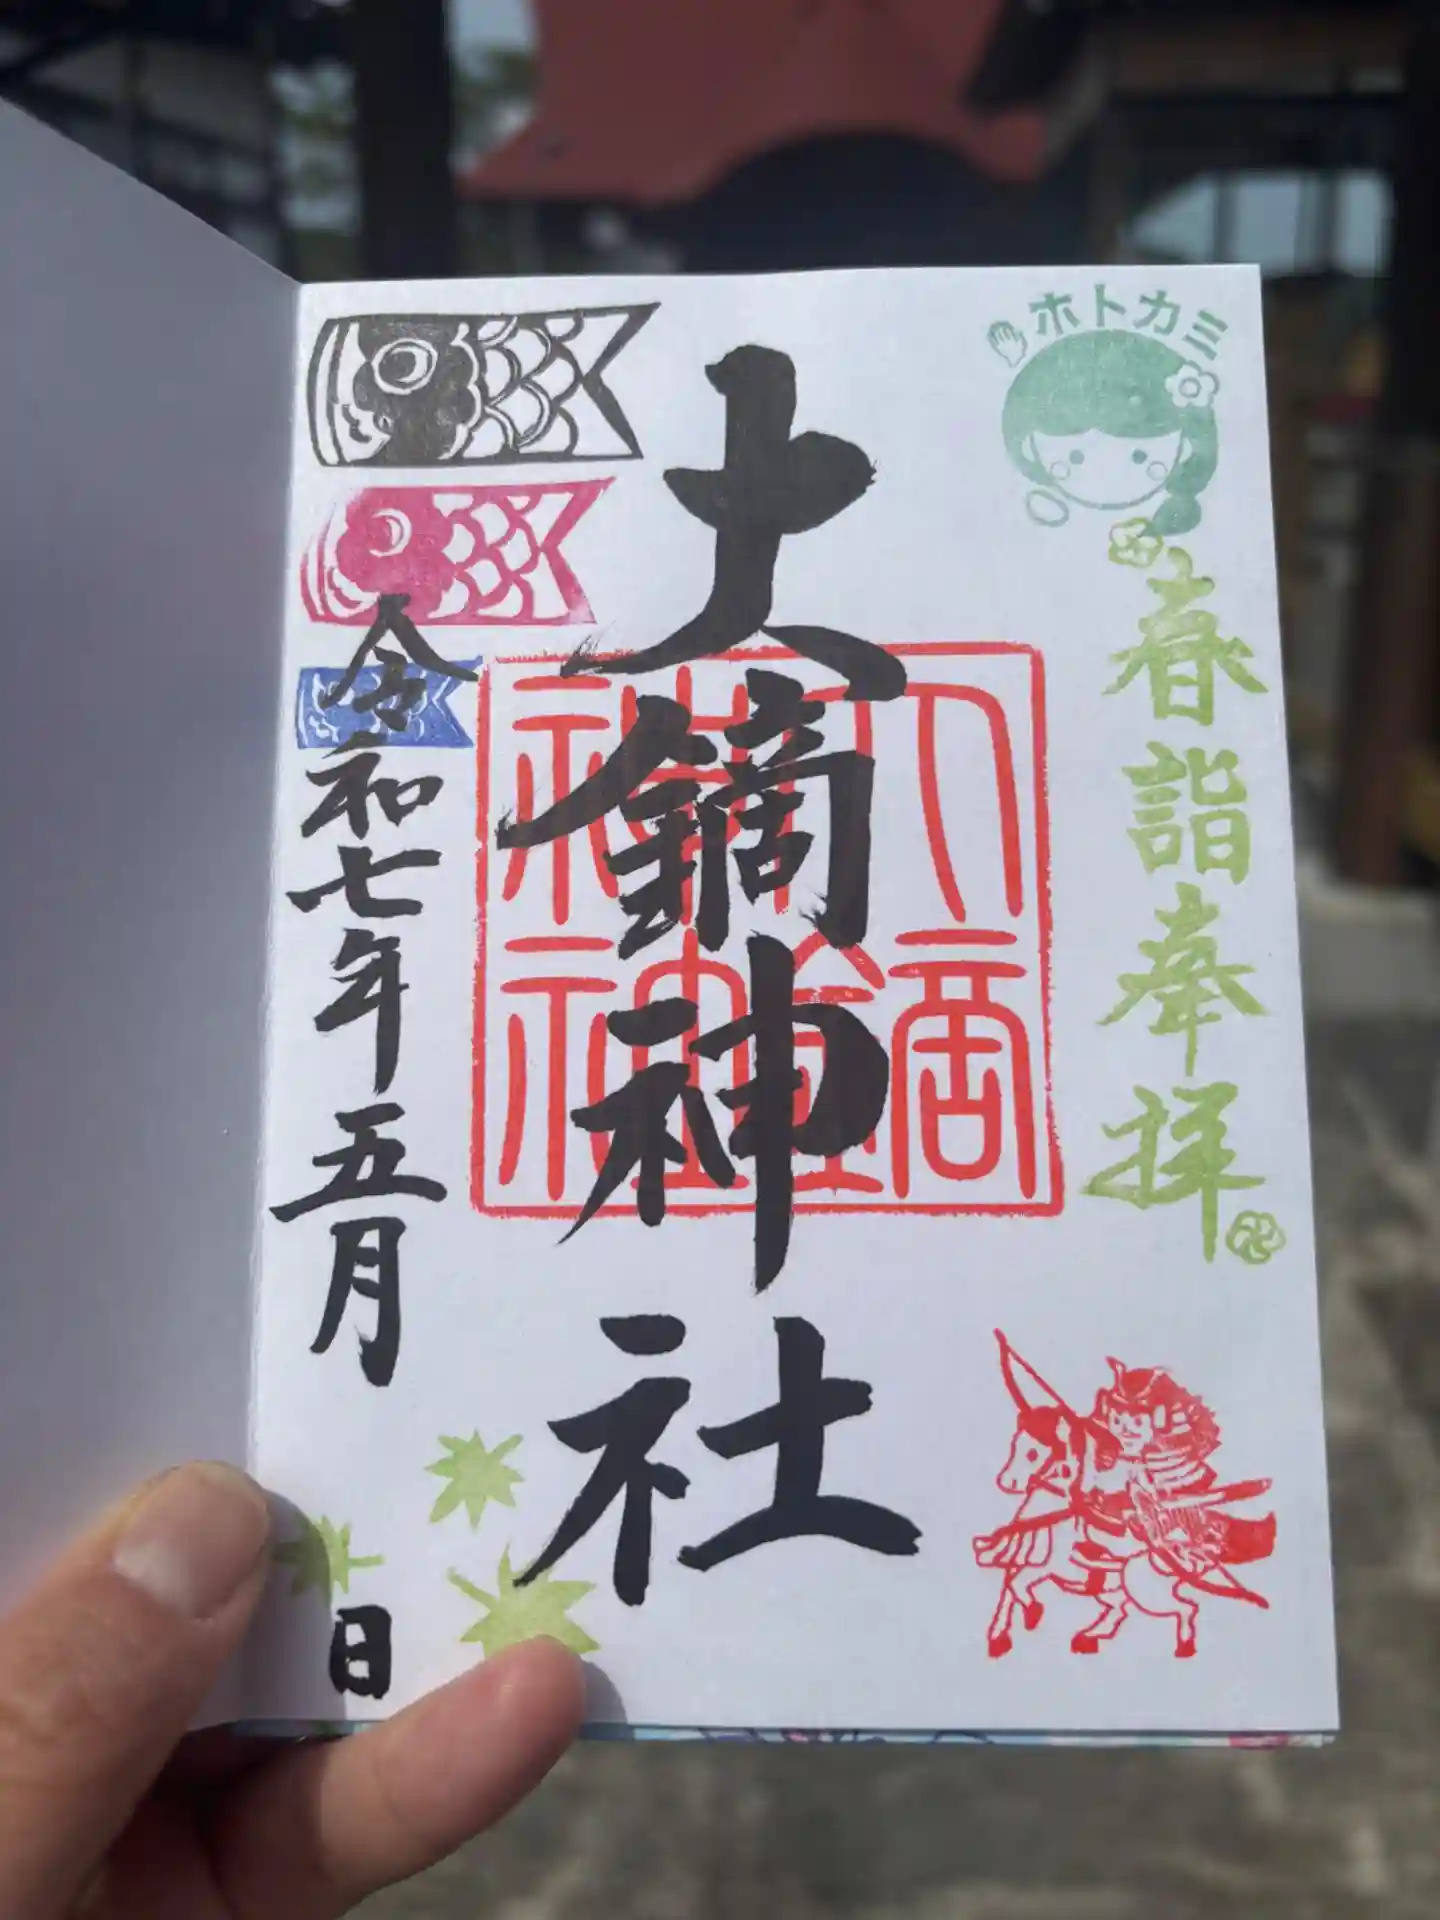 ホトカミ
春詣奉拝
大鏑神社
令和七年五月
日